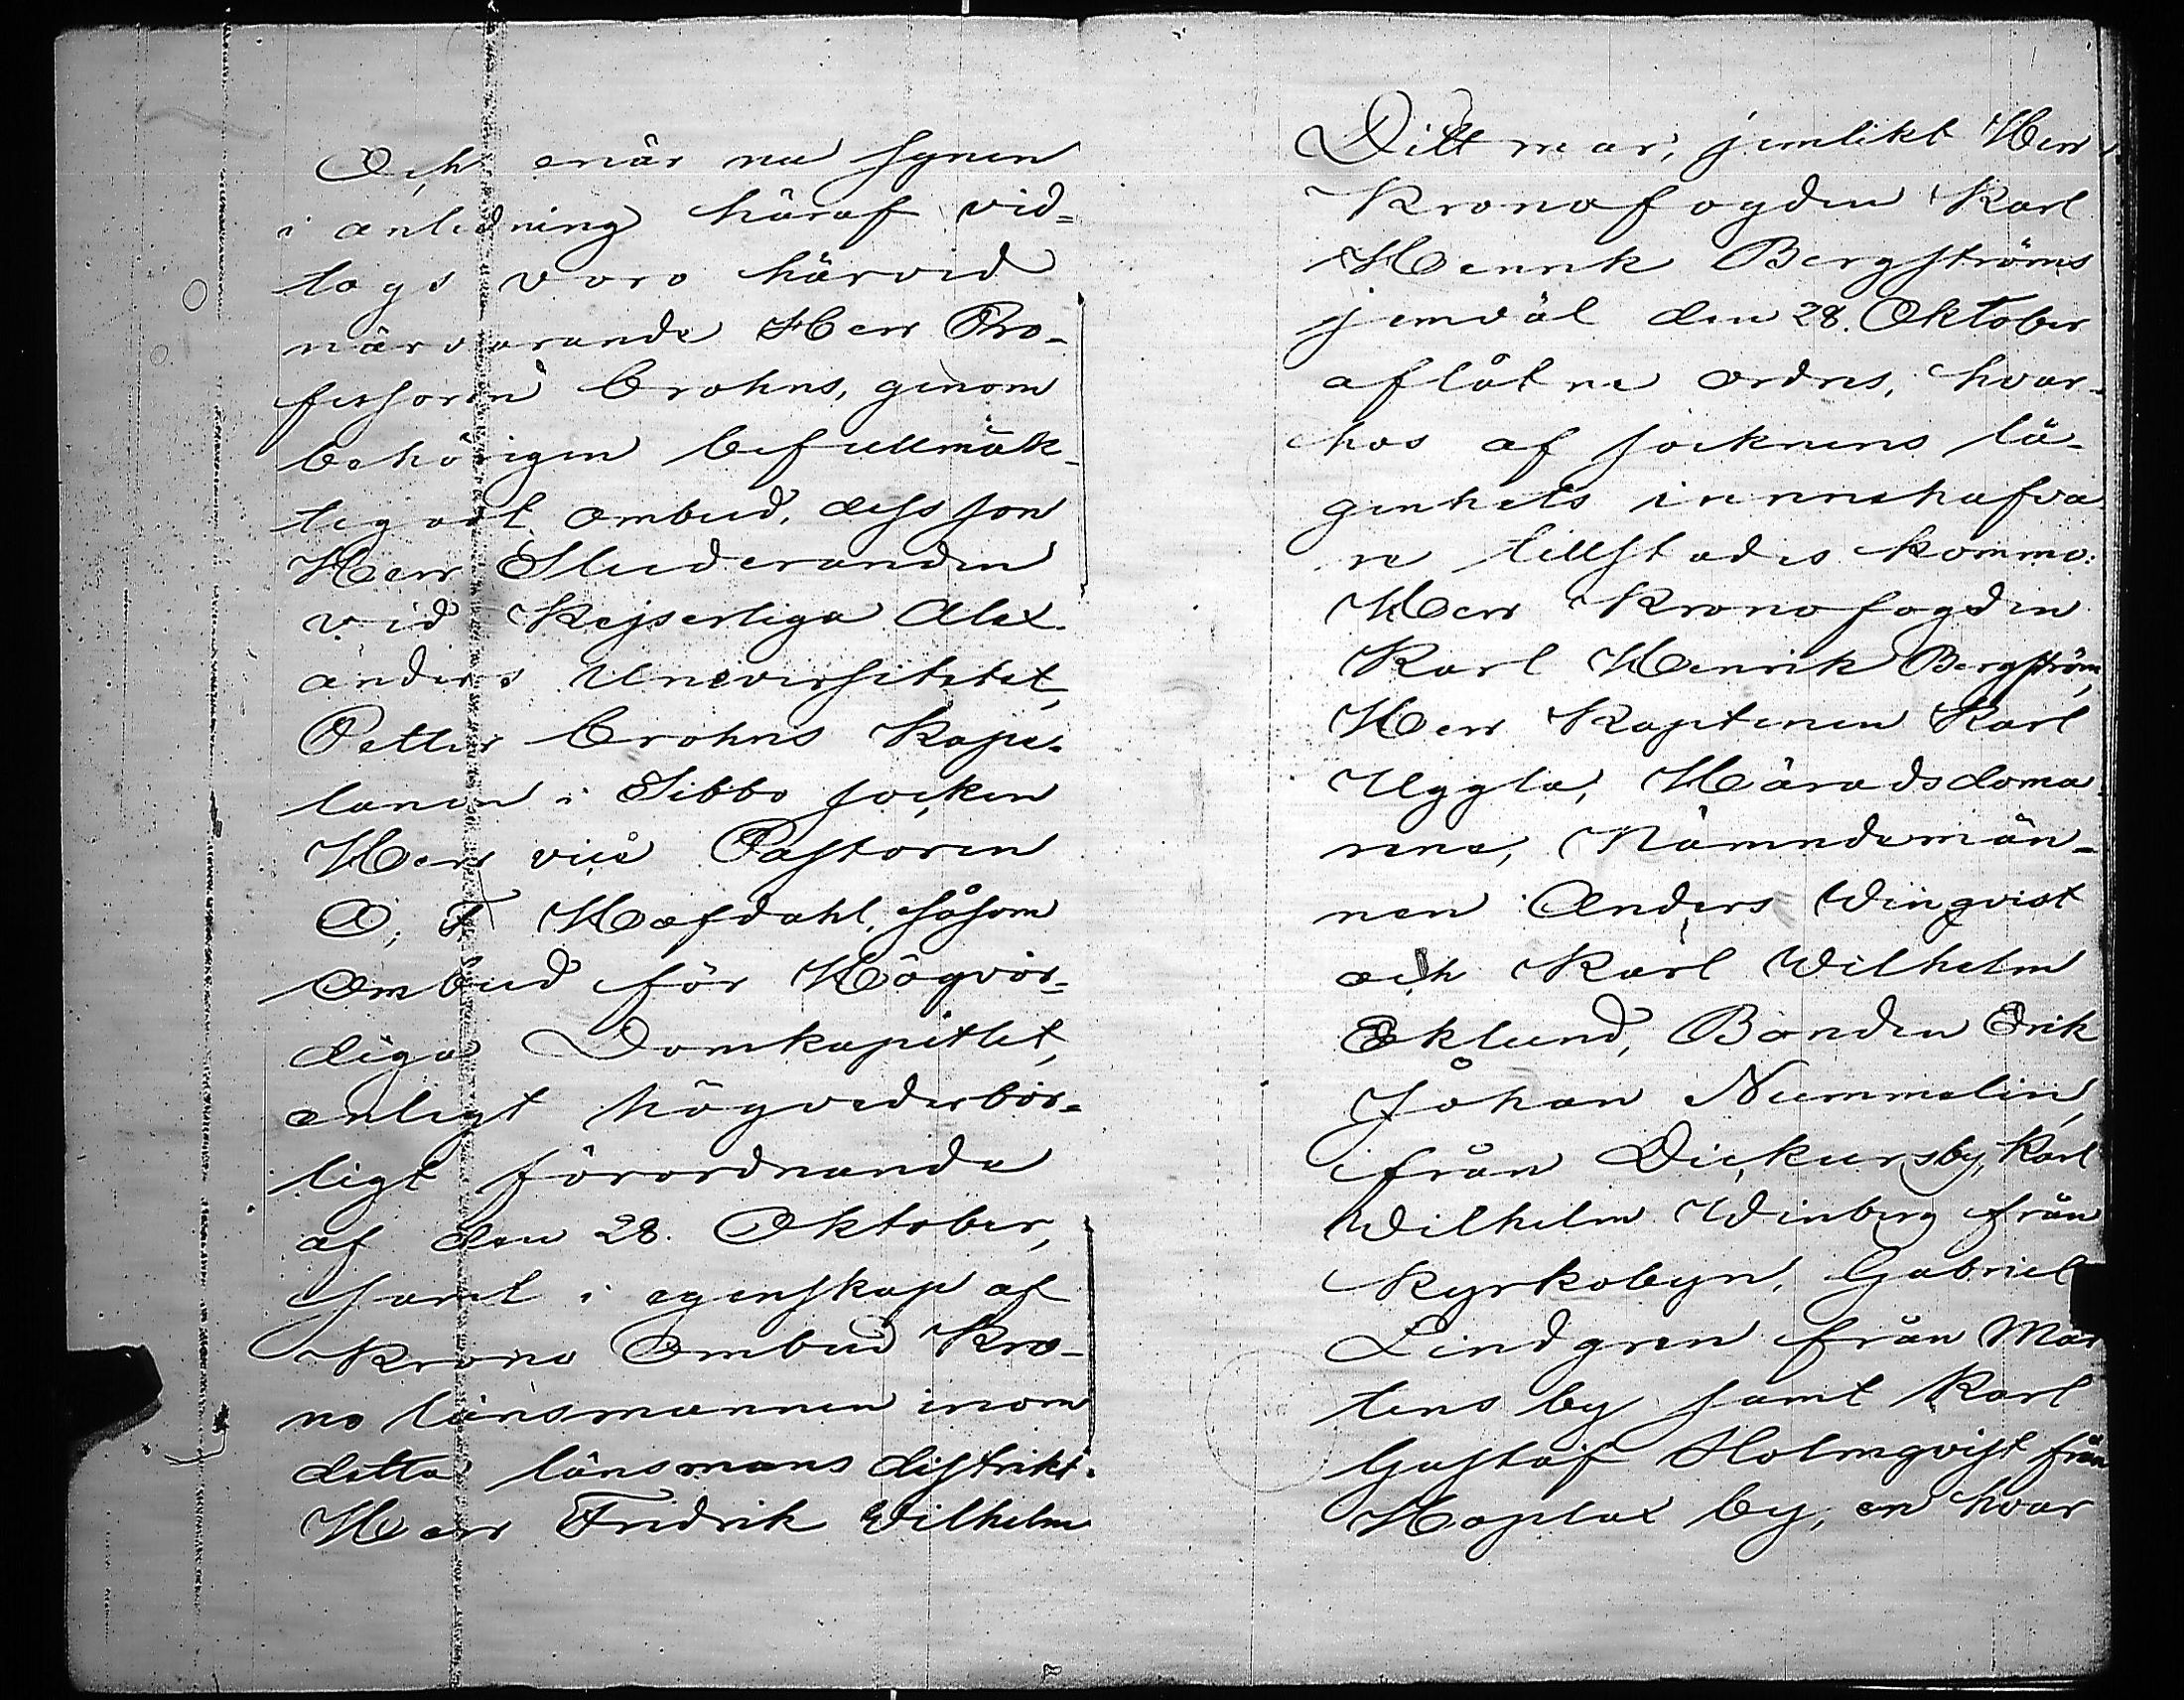 Och enär nu synen
i anledning häraf vid-
togs voro härvid
närvarande Herr Pro-
fessoren Crohns, genom
behörigen befullmäk-
tigadt ombud, dess son
Herr Studeranden
vid Kejserliga Alex-
anders Universitetet,
Petter Crohns Kape-
lanen i Sibbo socken
Herr vice Pastoren
O. F. Hafdahl, såsom
Ombud för Högvör-
diga Domkapitlet,
enligt högvederbör-
ligt förordnande
af den 28. Oktober,
samt i egenskap af
Krono Ombud Kro-
no länsmannen inom
detta länsmans distrikt
Herr Fredrik Wilhelm
Dittmar, jemlikt Herr
Kronofogden Karl
Henrik Bergströms
jemväl den 28. Oktober
aflåtne ordres, hvar-
hos af socknens lä-
genhets innehafva
re tillstädes kommo:
Herr Kronofogden
Karl Henrik Bergström,
Herr Kaptenen Karl
Uggla, Häradsdoma
rene, Nämndemän-
nen Anders Winqvist
och Karl Wilhelm
Eklund, Bonden Erik
Johan Nummelin,
från Dickursby, Karl
Wilhelm Winberg från
Kyrkobyn, Gabriel
Lindgren från Mår
tens by samt Karl
Gustaf Holmqvist från
Haplax by, en hvar